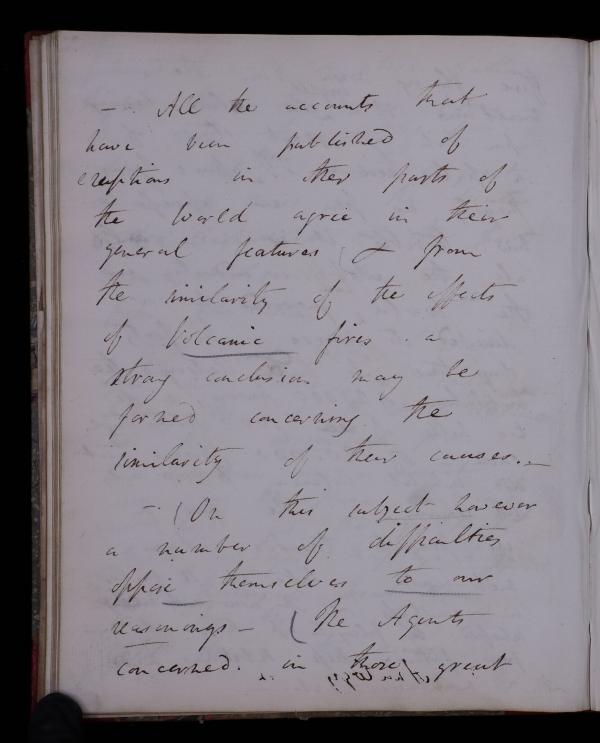 —. All the accounts that
have been published of
eruptions in other parts of
the World agree in their
general features ( & from
the similarity of the effects
of Volcanic fires. a
strong conclusion may be
formed concerning the
similarity of their causes.—
— (On this subject however
a number of difficulties
oppose themselves to our
reasonings — (The Agents
concerned. in those great